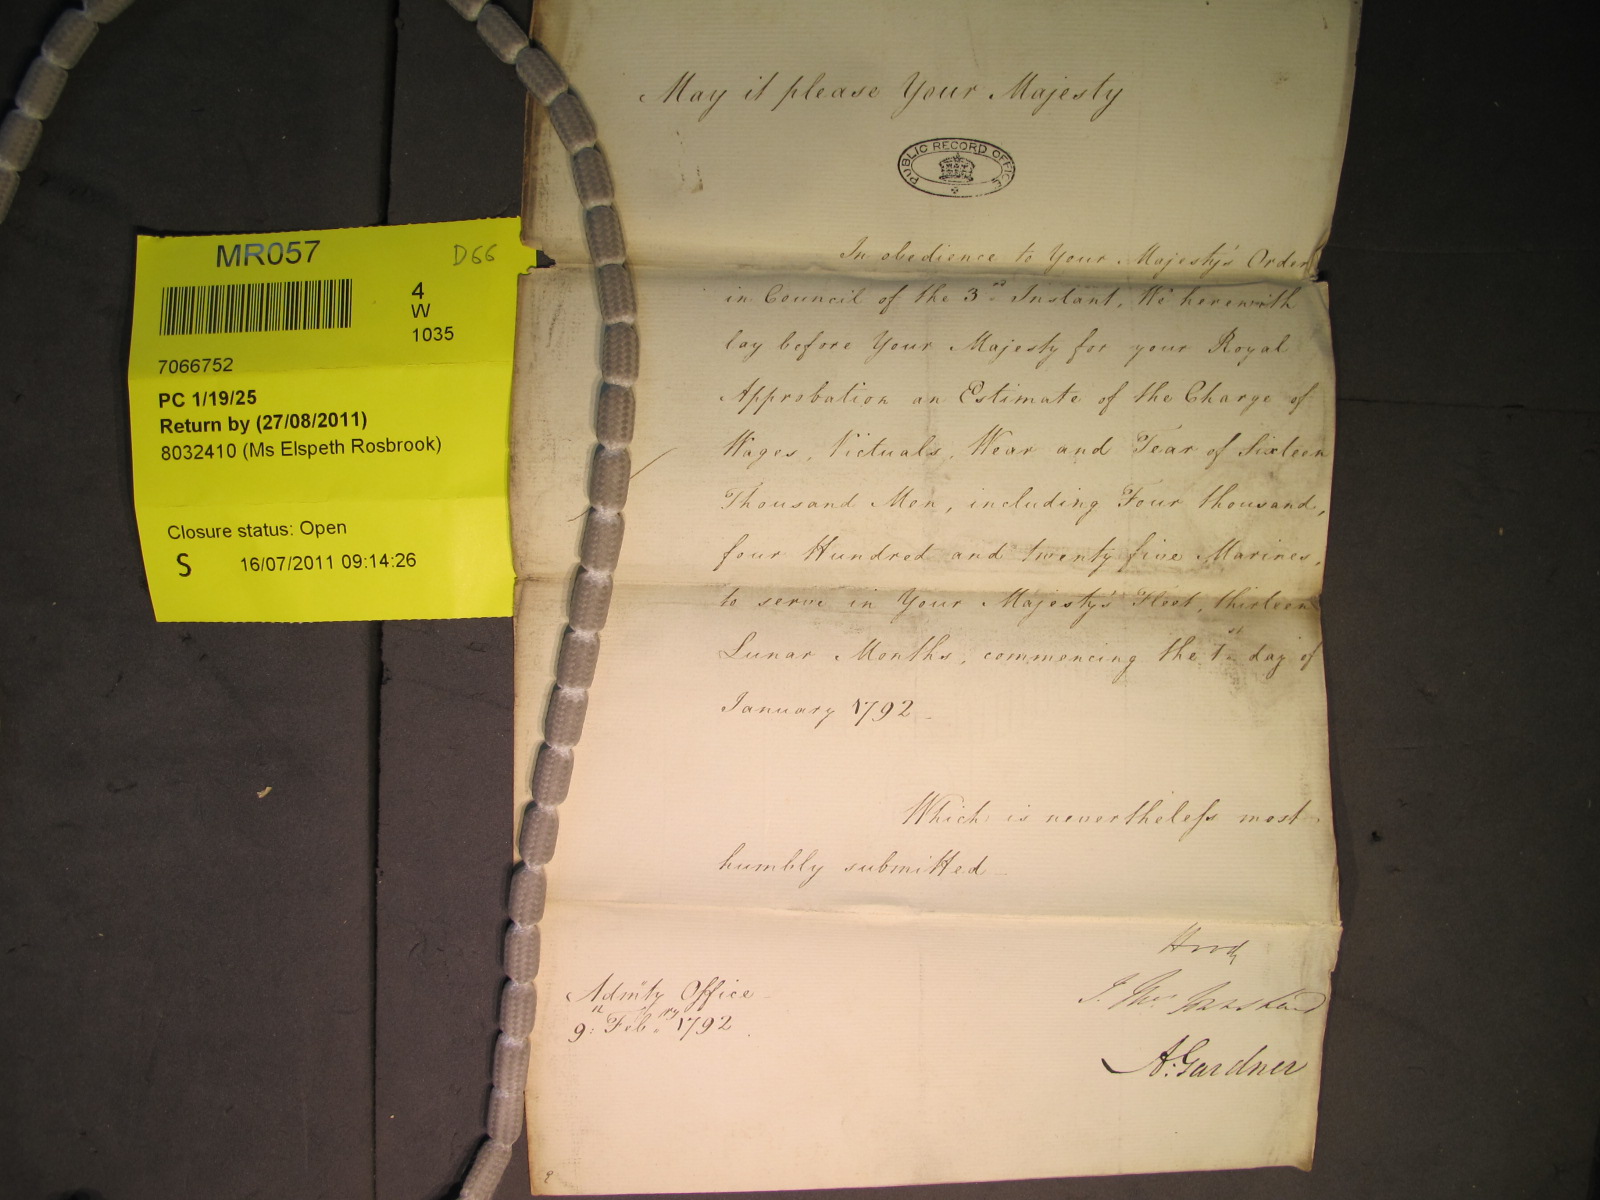 May it please Your Majesty
PUBLIC RECORD OFFICE
In obedience to Your Majesty's Order
in Council of the 3rd Instant, We herewith
lay before Your Majesty for your Royal
Approbation an Estimate of the Charge of
Wages, Victuals, Wear and Tear of Sixteen
Thousand Men, including Four thousand,
four Hundred and twenty five Marines,
to serve in Your Majesty's Fleet, thirteen
Lunar Months, commencing the 1st day of
January 1792
Which is nevertheless most
humbly submitted
Hood
A: Gardner
Admty Office
9th Febry 1792
MR057
D66
4
W
1035
7066752
PC 1/19/25
Return by (27/08/2011)
8032410 (Ms Elspeth Rosbrook)
Closure status: Open
S 16/07/2011 09:14:26